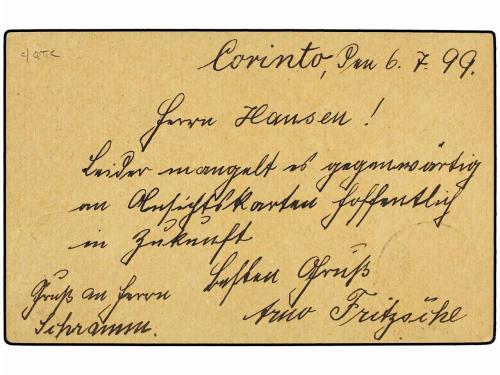 Corinto, den 6. 7. 99.
Herrn Hansen!
Leider mangelt es gegenwärtig
an Ansichtskarten hoffentlich
in Zukunft
besten Gruß
Arno Fritzsche
Gruß an Herrn
Schramm.